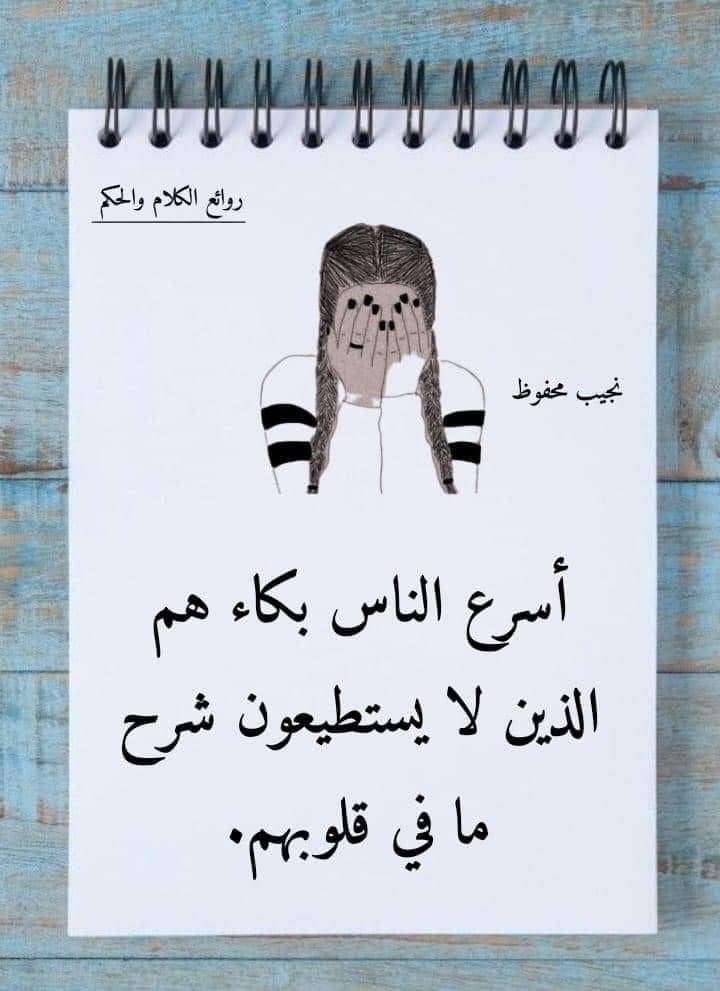 روائع الكلام والحكم
نجيب محفوظ
أسرع الناس بكاء هم
الذين لا يستطيعون شرح
ما في قلوبهم.